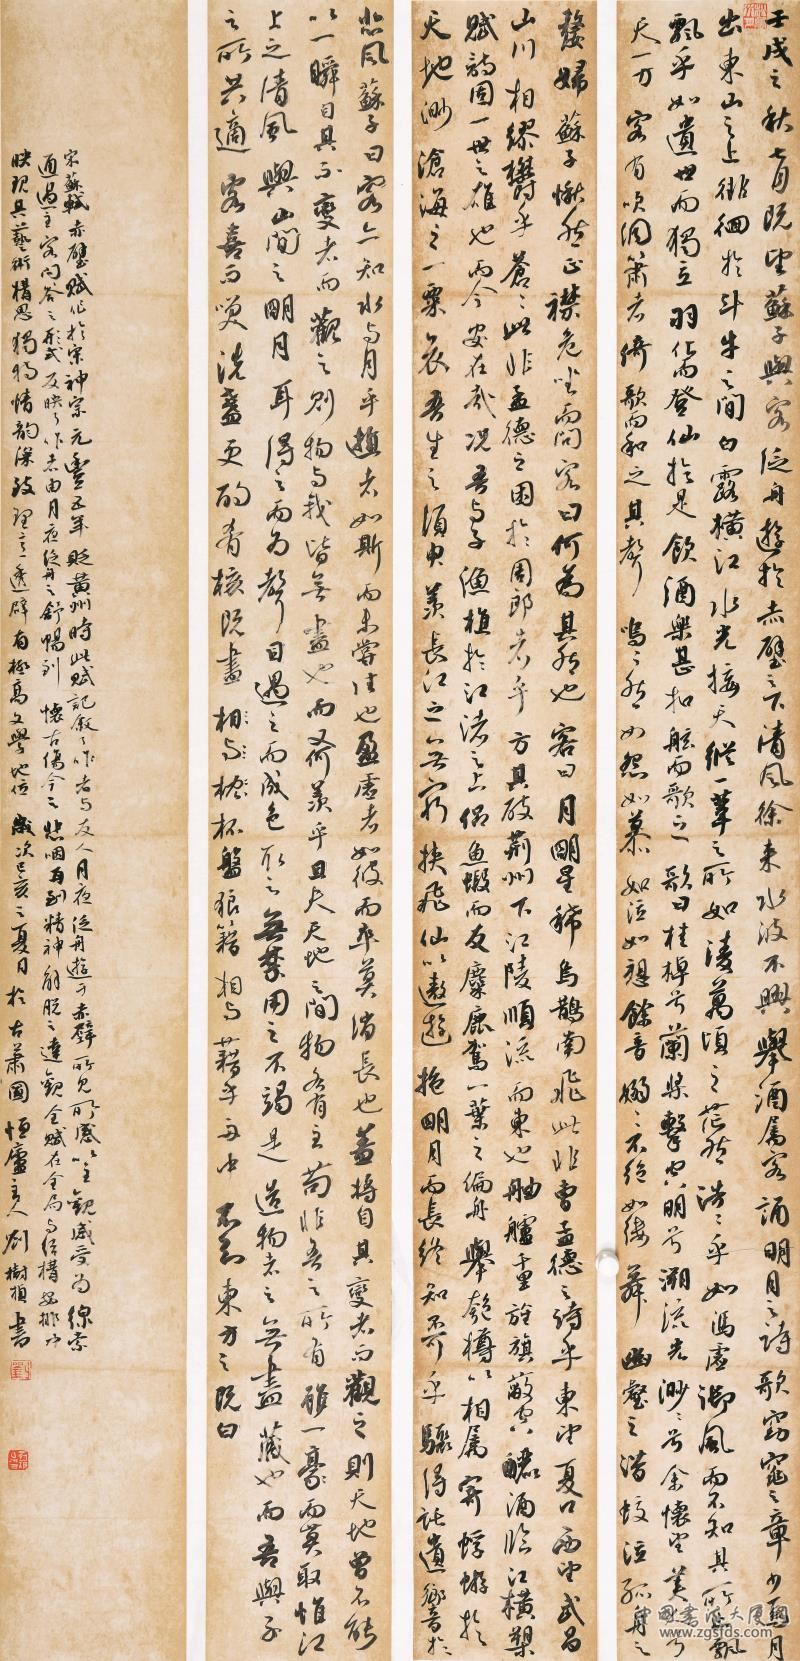 壬戌之秋七月既望蘇子與客泛舟遊於赤壁之下清風徐來水波不興舉酒屬客誦明月之詩歌窈窕之章少焉月
出東山之上徘徊於斗牛之間白露橫江水光接天縱一葦之所如凌萬頃之茫然浩浩乎如馮虛御風而不知其所止飄
飄乎如遺世而獨立羽化而登仙於是飲酒樂甚扣舷而歌之歌曰桂棹兮蘭槳擊空明兮溯流光渺渺兮余懷望美人兮
天一方客有吹洞簫者倚歌而和之其聲嗚嗚然如怨如慕如泣如訴餘音嫋嫋不絕如縷舞幽壑之潛蛟泣孤舟之
嫠婦蘇子愀然正襟危坐而問客曰何為其然也客曰月明星稀烏鵲南飛此非曹孟德之詩乎東望夏口西望武昌
山川相繆鬱乎蒼蒼此非孟德之困於周郎者乎方其破荊州下江陵順流而東也舳艫千里旌旗蔽空釃酒臨江橫槊
賦詩固一世之雄也而今安在哉況吾與子漁樵於江渚之上侶魚蝦而友麋鹿駕一葉之扁舟舉匏樽以相屬寄蜉蝣於
天地渺滄海之一粟哀吾生之須臾羨長江之無窮挾飛仙以遨遊抱明月而長終知不可乎驟得託遺響於
悲風蘇子曰客亦知水與月乎逝者如斯而未嘗往也盈虛者如彼而卒莫消長也蓋將自其變者而觀之則天地曾不能
以一瞬自其不變者而觀之則物與我皆無盡也而又何羨乎且夫天地之間物各有主苟非吾之所有雖一毫而莫取惟江
上之清風與山間之明月耳得之而為聲目遇之而成色取之無禁用之不竭是造物者之無盡藏也而吾與子
之所共適客喜而笑洗盞更酌肴核既盡相與枕杯盤狼籍相與藉乎舟中不知東方之既白
宋蘇軾赤壁賦作於宋神宗元豐五年貶黃州時此賦記敘了作者與友人月夜泛舟遊於赤壁所見所感以主觀感受為線索
通過主客問答之形式反映了作者由月夜泛舟之舒暢到懷古傷今之悲咽再到精神解脫之達觀全賦在全局與結構安排中
映現其藝術構思獨特情韻深致理意透闢有極高文學地位歲次己亥之夏月於古蕭國恒廬主人劉樹桓書
中国书法大厦网
www.zgsfds.com